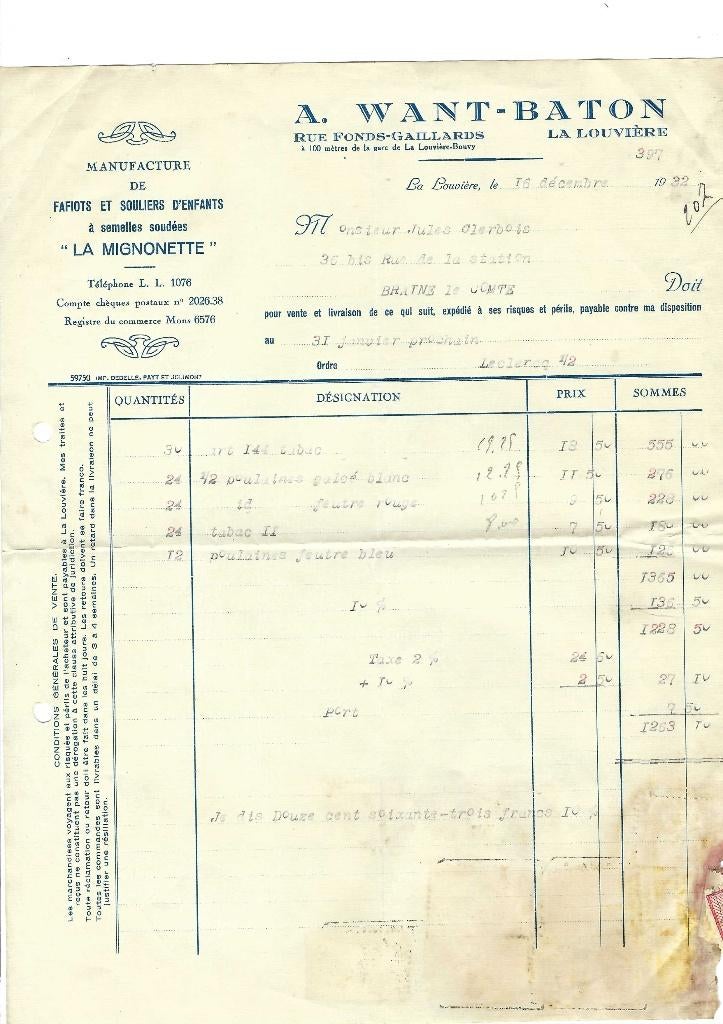 A. WANT-BATON
RUE FONDS-GAILLARDS LA LOUVIÈRE
à 100 mètres de la gare de La Louvière-Bouvy
397
La Louvière, le 16 décembre 1932
207
MANUFACTURE
DE
FAFIOTS ET SOULIERS D'ENFANTS
à semelles soudées
" LA MIGNONETTE "
Téléphone L. L. 1076
Compte chèques postaux nº 2026.38
Registre du commerce Mons 6576
Monsieur Jules Clerbois
36 bis Rue de la station
BRAINE le COMTE
Doit
pour vente et livraison de ce qui suit, expédié à ses risques et périls, payable contre ma disposition
au 31 janvier prochain
Ordre Leclercq 42
59750 IMP. DEDELLE, PAYT ET JOLIMONT
QUANTITÉS DÉSIGNATION PRIX SOMMES
30 art 144 tabac 19.25 18 50 555 00
24 42 poulaines galcé blanc 12.25 11 50 276 00
24 id feutre rouge 10 25 9 50 228 00
24 tabac II 8.00 7 50 180 00
12 poulaines feutre bleu 10 50 126 00
1365 00
10 % 136 50
1228 50
Taxe 2 % 24 60
+ 10 % 2 50 27 10
Port 7 50
1263 10
Je dis Douze cent soixante-trois francs 10
CONDITIONS GÉNÉRALES DE VENTE.
Les marchandises voyagent aux risques et périls de l'acheteur et sont payables à La Louvière. Mes traites et
reçus ne constituent pas une dérogation à cette clause attributive de juridiction.
Toute réclamation ou retour doit être fait dans les huit jours. Les retours doivent se faire franco.
Toutes les commandes sont livrables dans un délai de 3 à 4 semaines. Un retard dans la livraison ne peut
justifier une résiliation.